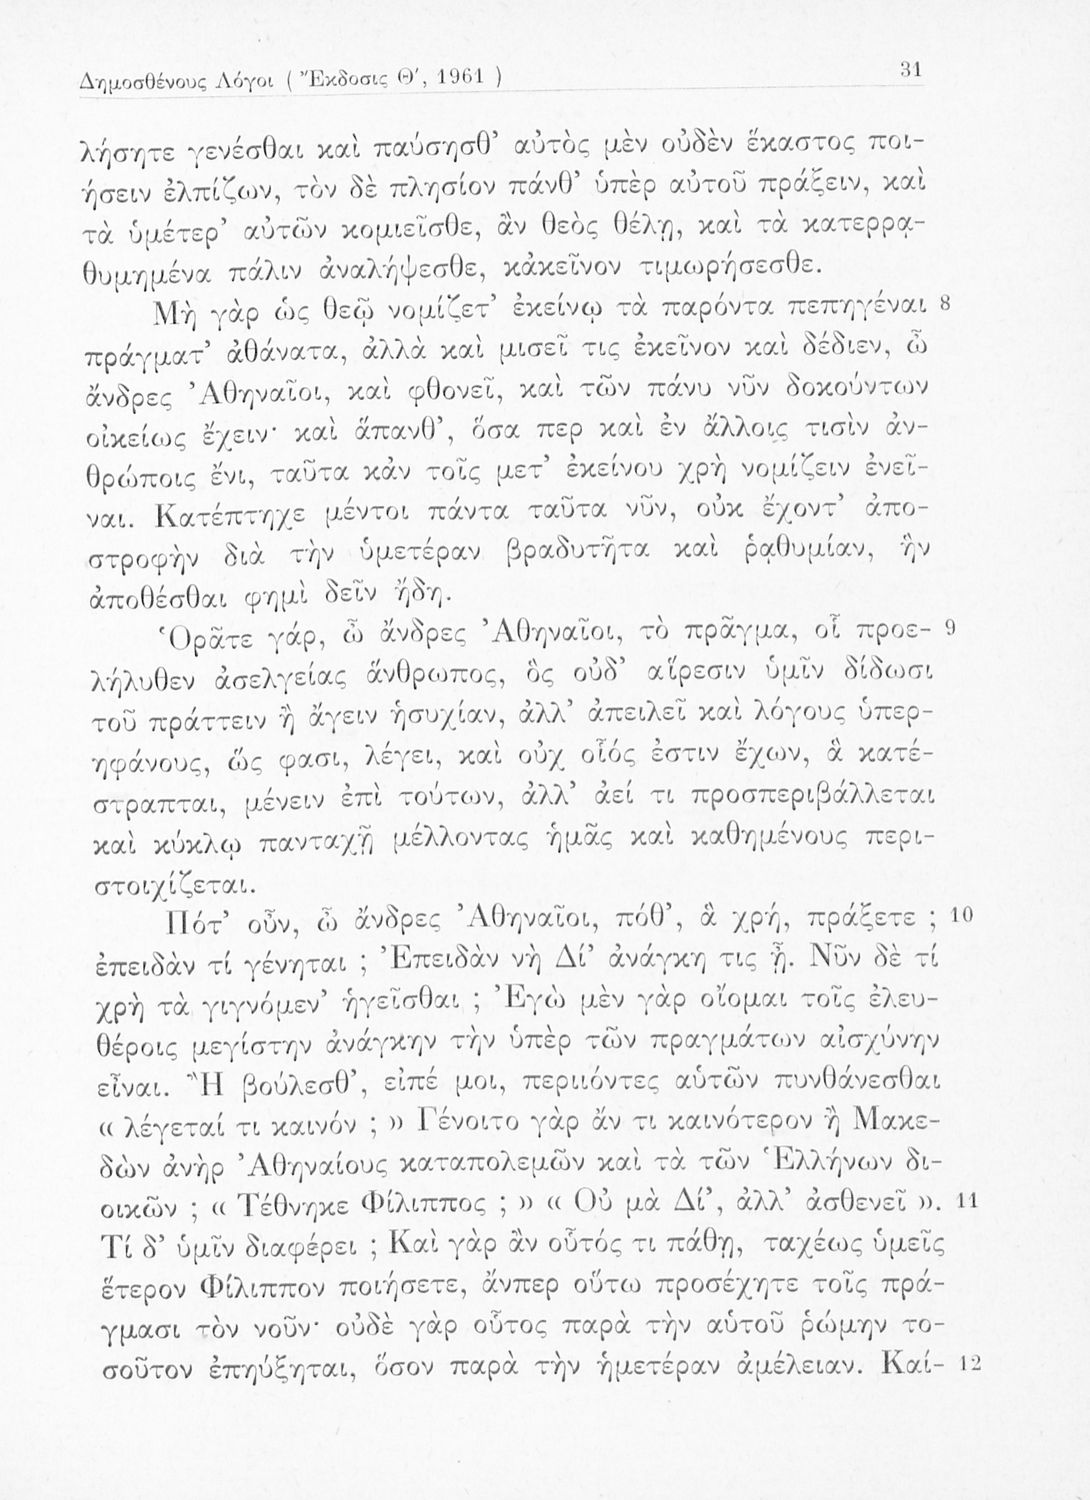 Δημοσθένους Λόγοι ( Ἔκδοσις Θ', 1961 ) 31
λήσητε γενέσθαι καὶ παύσησθ’ αὐτὸς μὲν οὐδὲν ἕκαστος ποι-
ήσειν ἐλπίζων, τὸν δὲ πλησίον πάνθ’ ὑπὲρ αὐτοῦ πράξειν, καὶ
τὰ ὑμέτερ’ αὐτῶν κομιεῖσθε, ἂν θεὸς θέλῃ, καὶ τὰ κατερρᾳ-
θυμημένα πάλιν ἀναλήψεσθε, κἀκεῖνον τιμωρήσεσθε.
Μὴ γὰρ ὡς θεῷ νομίζετ’ ἐκείνῳ τὰ παρόντα πεπηγέναι 8
πράγματ’ ἀθάνατα, ἀλλὰ καὶ μισεῖ τις ἐκεῖνον καὶ δέδιεν, ὦ
ἄνδρες Ἀθηναῖοι, καὶ φθονεῖ, καὶ τῶν πάνυ νῦν δοκούντων
οἰκείως ἔχειν· καὶ ἅπανθ’, ὅσα περ καὶ ἐν ἄλλοις τισὶν ἀν-
θρώποις ἔνι, ταῦτα κἀν τοῖς μετ’ ἐκείνου χρὴ νομίζειν ἐνεῖ-
ναι. Κατέπτηχε μέντοι πάντα ταῦτα νῦν, οὐκ ἔχοντ’ ἀπο-
στροφὴν διὰ τὴν ὑμετέραν βραδυτῆτα καὶ ῥᾳθυμίαν, ἣν
ἀποθέσθαι φημὶ δεῖν ἤδη.
Ὁρᾶτε γάρ, ὦ ἄνδρες Ἀθηναῖοι, τὸ πρᾶγμα, οἷ προε- 9
λήλυθεν ἀσελγείας ἅνθρωπος, ὃς οὐδ’ αἵρεσιν ὑμῖν δίδωσι
τοῦ πράττειν ἢ ἄγειν ἡσυχίαν, ἀλλ’ ἀπειλεῖ καὶ λόγους ὑπερ-
ηφάνους, ὥς φασι, λέγει, καὶ οὐχ οἷός ἐστιν ἔχων, ἃ κατέ-
στραπται, μένειν ἐπὶ τούτων, ἀλλ’ ἀεί τι προσπεριβάλλεται
καὶ κύκλῳ πανταχῇ μέλλοντας ἡμᾶς καὶ καθημένους περι-
στοιχίζεται.
Πότ’ οὖν, ὦ ἄνδρες Ἀθηναῖοι, πόθ’, ἃ χρή, πράξετε ; 10
ἐπειδὰν τί γένηται ; Ἐπειδὰν νὴ Δί’ ἀνάγκη τις ᾖ. Νῦν δὲ τί
χρὴ τὰ γιγνόμεν’ ἡγεῖσθαι ; Ἐγὼ μὲν γὰρ οἴομαι τοῖς ἐλευ-
θέροις μεγίστην ἀνάγκην τὴν ὑπὲρ τῶν πραγμάτων αἰσχύνην
εἶναι. Ἢ βούλεσθ’, εἰπέ μοι, περιιόντες αὑτῶν πυνθάνεσθαι
« λέγεταί τι καινόν ; » Γένοιτο γὰρ ἄν τι καινότερον ἢ Μακε-
δὼν ἀνὴρ Ἀθηναίους καταπολεμῶν καὶ τὰ τῶν Ἑλλήνων δι-
οικῶν ; « Τέθνηκε Φίλιππος ; » « Οὐ μὰ Δί’, ἀλλ’ ἀσθενεῖ ». 11
Τί δ’ ὑμῖν διαφέρει ; Καὶ γὰρ ἂν οὗτός τι πάθῃ, ταχέως ὑμεῖς
ἕτερον Φίλιππον ποιήσετε, ἄνπερ οὕτω προσέχητε τοῖς πρά-
γμασι τὸν νοῦν· οὐδὲ γὰρ οὗτος παρὰ τὴν αὑτοῦ ῥώμην το-
σοῦτον ἐπηύξηται, ὅσον παρὰ τὴν ἡμετέραν ἀμέλειαν. Καί- 12